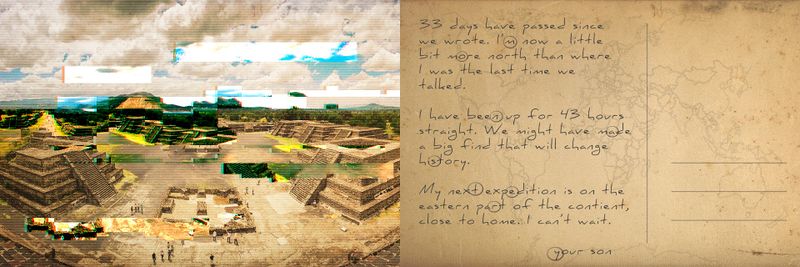 33 days have passed since
we wrote. I'm now a little
bit more north than where
I was the last time we
talked.
I have been up for 43 hours
straight. We might have made
a big find that will change
history.
My next expedition is on the
eastern part of the contient,
close to home. I can't wait.
your son